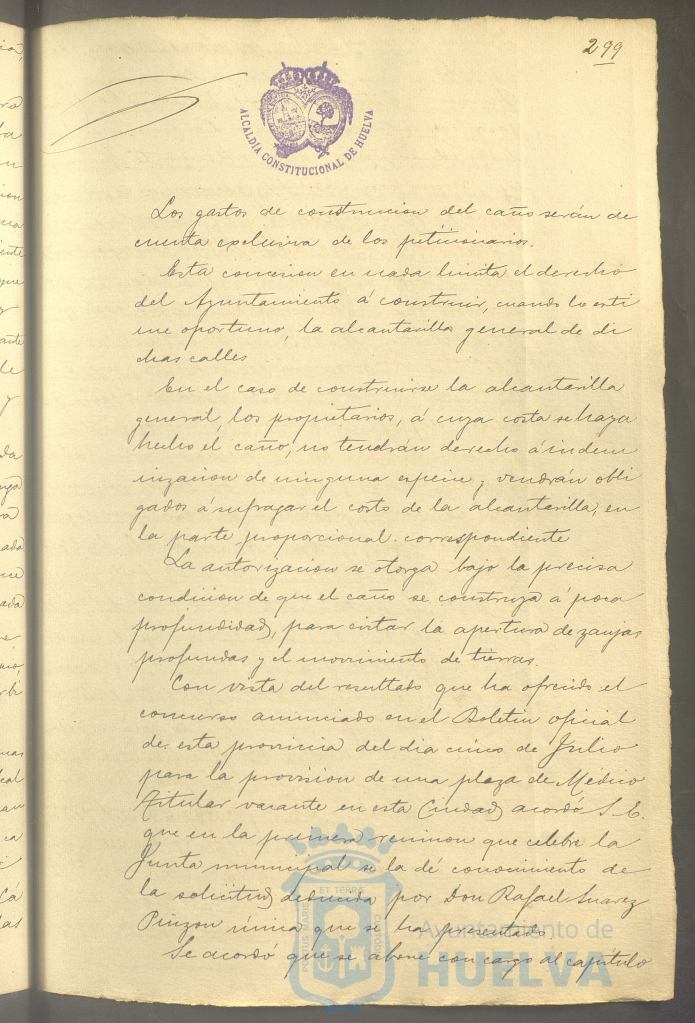 299
ALCALDÍA CONSTITUCIONAL DE HUELVA
Los gastos de construccion del caño serán de
cuenta exclusiva de los peticionarios.
Esta concesion en nada limita el derecho
del Ayuntamiento á construir, cuando lo esti
me oportuno, la alcantarilla general de di
chas calles
En el caso de construirse la alcantarilla
general, los propietarios, á cuya costa se haya
hecho el caño, no tendrán derecho á indem
nizacion de ninguna especie y vendrán obli
gados á sufragar el costo de la alcantarilla, en
la parte proporcional correspondiente
La autorizacion se otorga bajo la precisa
condicion de que el caño se construya á poca
profundidad, para evitar la apertura de zanjas
profundas y el movimiento de tierras.
Con vista del resultado que ha ofrecido el
concurso anunciado en el Boletin oficial
de esta provincia del dia cinco de Julio
para la provision de una plaza de Médico
Titular vacante en esta Ciudad acordó S. E.
que en la primera reunion que celebre la
Junta municipal se la dé conocimiento de
la solicitud deducida por Don Rafael Suarez
Pinzon única que se ha presentado.
Se acordó que se abone con cargo al capítulo
PORTUS MARIS ET TERRE CUSTODIA
Ayuntamiento de
HUELVA